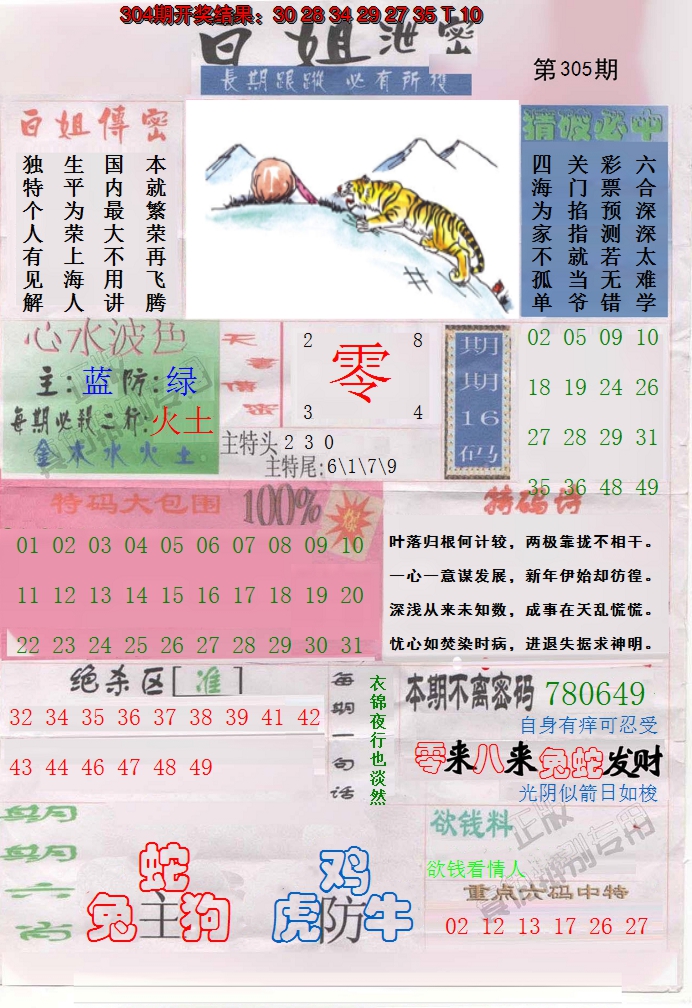 304期开奖结果：30 28 34 29 27 35 T 10
白姐泄密
第305期
長期跟蹤 必有所獲
白姐傳密
本就繁荣再飞腾
国内最大不用讲
生平为荣上海人
独特个人有见解
猜波必中
六合深深太难学
彩票预测若无错
关门掐指就当爷
四海为家不孤单
心水波色
主：蓝 防：绿
每期必殺二行：火土
金木水火土
天書信密
2 8
零
3 4
主特头 2 3 0
主特尾：6\1\7\9
期期16码
02 05 09 10
18 19 24 26
27 28 29 31
35 36 48 49
特码大包围 100%
01 02 03 04 05 06 07 08 09 10
11 12 13 14 15 16 17 18 19 20
22 23 24 25 26 27 28 29 30 31
特码诗
叶落归根何计较，两极靠拢不相干。
一心一意谋发展，新年伊始却彷徨。
深浅从来未知数，成事在天乱慌慌。
忧心如焚染时病，进退失据求神明。
绝杀区[准]
32 34 35 36 37 38 39 41 42
43 44 46 47 48 49
每期一句话
衣锦夜行也淡然
本期不离密码 780649
自身有痒可忍受
零来八来兔蛇发财
光阴似箭日如梭
每期
每期
六
肖
蛇
兔主狗
鸡
虎防牛
欲钱料
欲钱看情人
重点六码中特
02 12 13 17 26 27